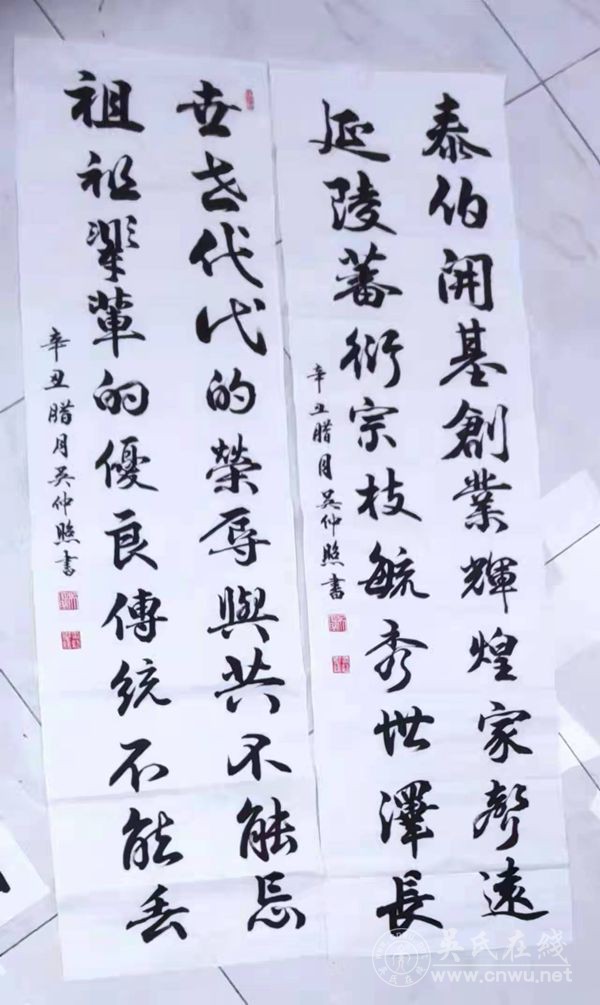 泰伯開基創業輝煌家聲遠
延陵蕃衍宗枝毓秀世澤長
辛丑腊月吴仲照書
世世代代的榮辱與共不能忘
祖祖輩輩的優良傳統不能丢
辛丑腊月吴仲照書
吴氏在线
www.cnwu.net